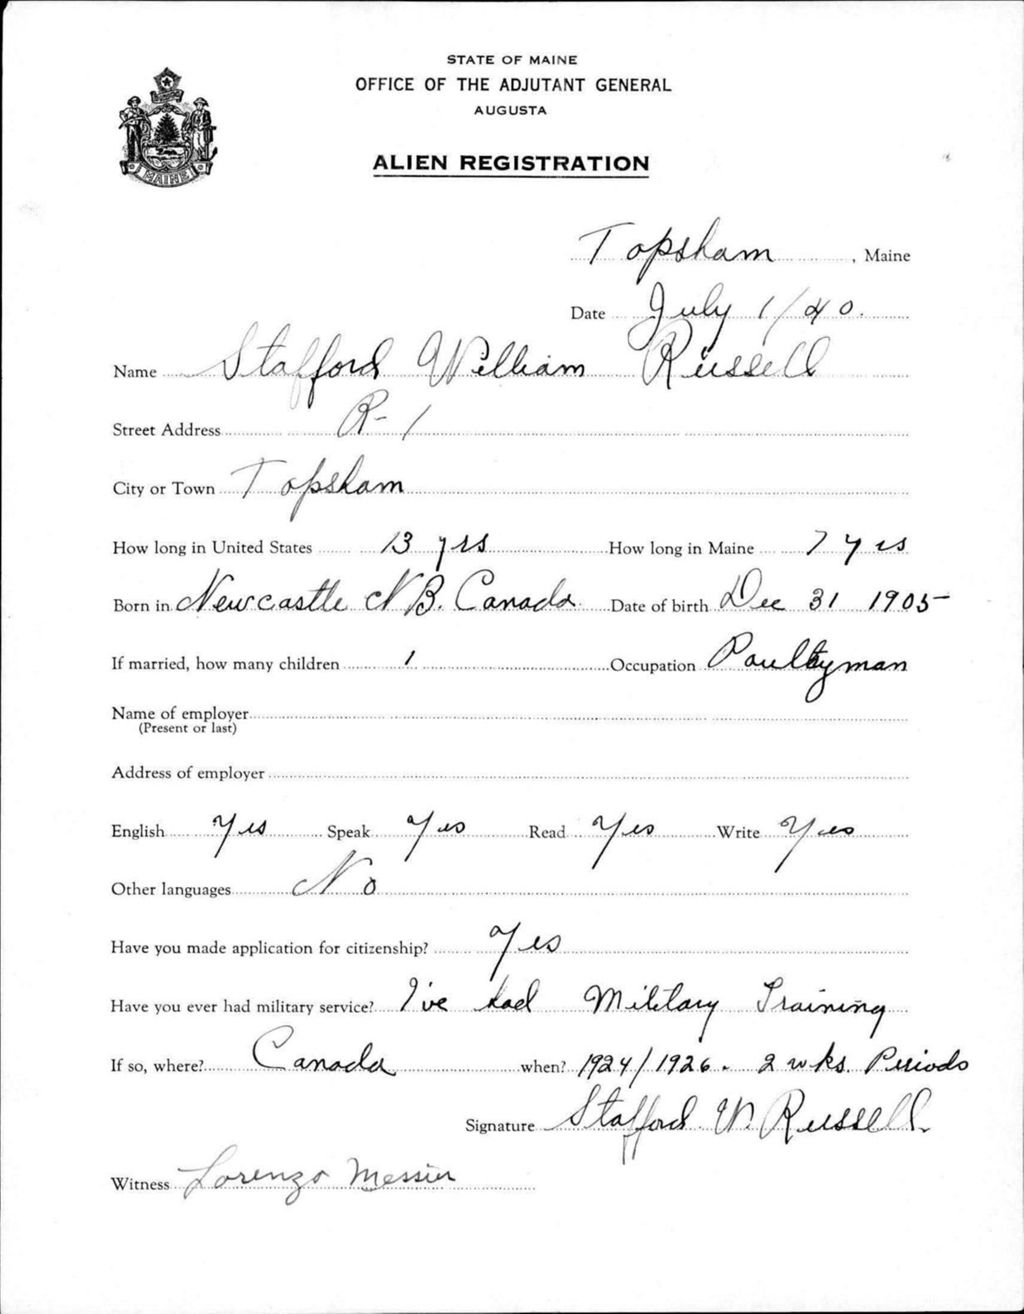 STATE OF MAINE
OFFICE OF THE ADJUTANT GENERAL
AUGUSTA
ALIEN REGISTRATION
Topsham, Maine
Date July 1/40.
Name Stafford William Russell
Street Address R-1
City or Town Topsham
How long in United States 13 yrs How long in Maine 7 yrs
Born in Newcastle N.B. Canada Date of birth Dec 31 1905
If married, how many children 1 Occupation Poultryman
Name of employer
(Present or last)
Address of employer
English Yes Speak Yes Read Yes Write Yes
Other languages No
Have you made application for citizenship? Yes
Have you ever had military service? I've had Military Training
If so, where? Canada when? 1924/1926. 2 wks. Periods
Signature Stafford W. Russell.
Witness Lorenzo Messier
MAINE